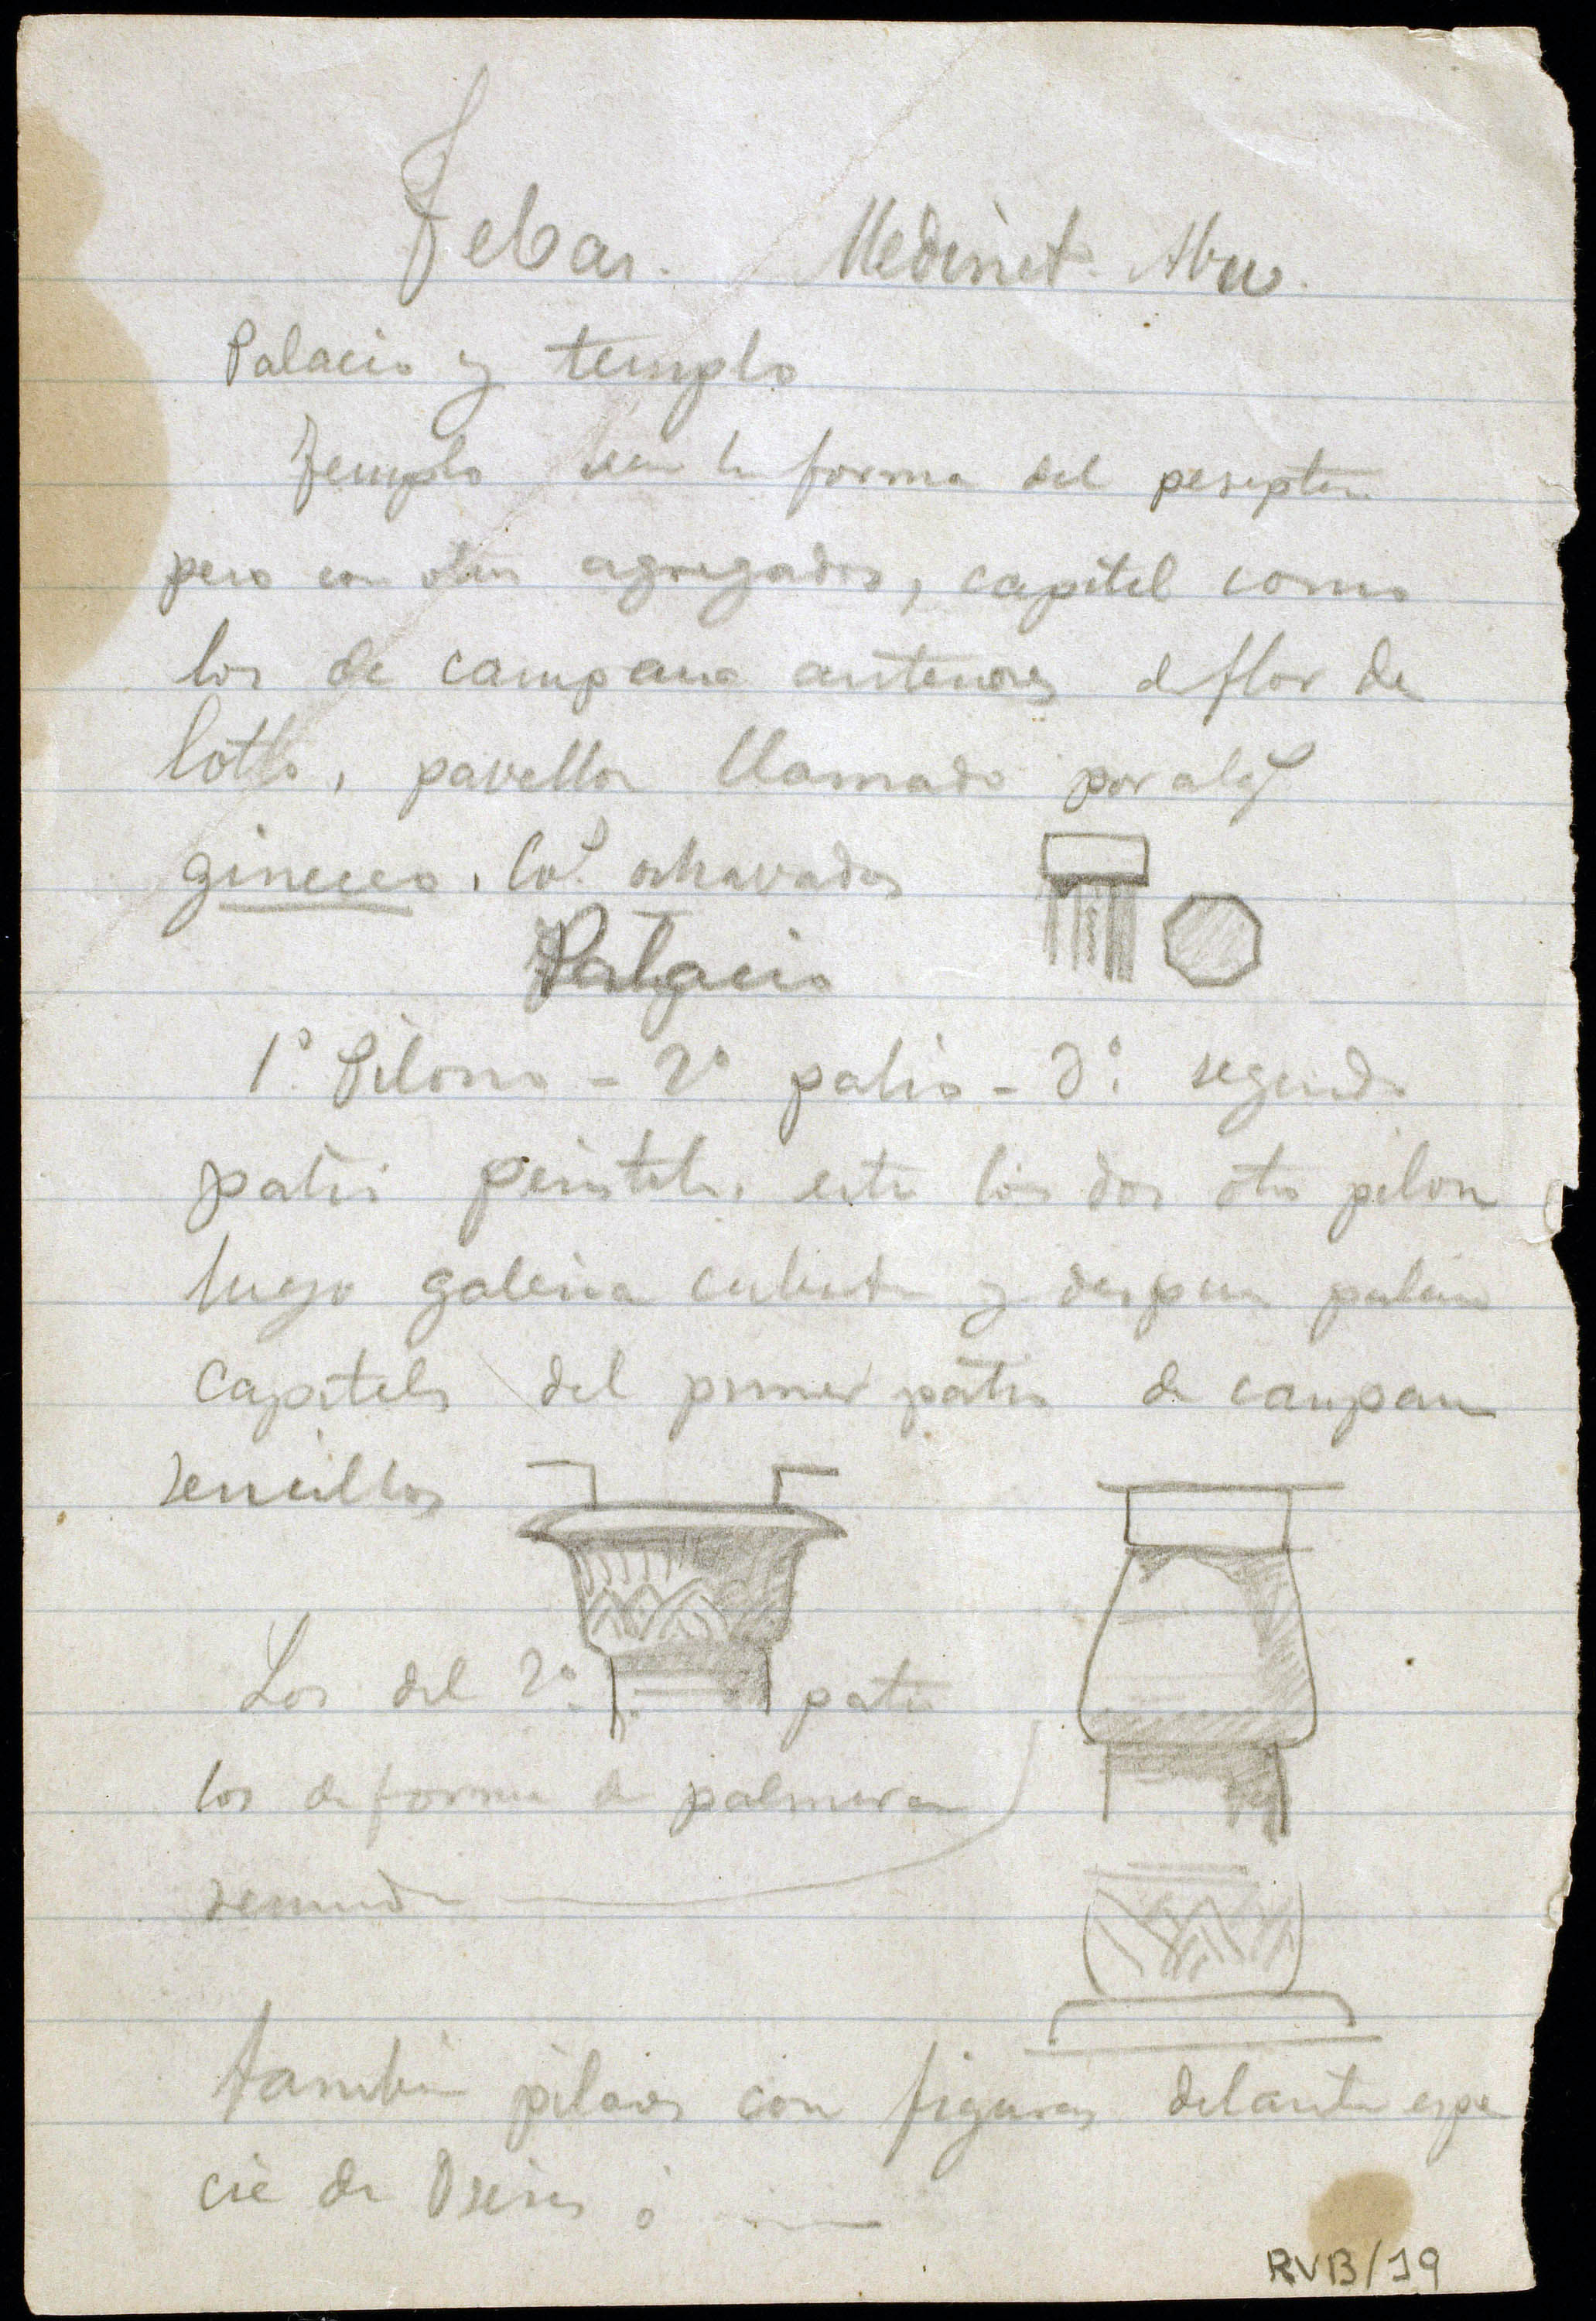 Tebas. Medinet Abu.
Palacio y templo
Templo forma del peripter
pero con otros agregados, capitel como
los de campana anteriores d flor de
lotto, pavellon llamado por alg
gineceo, Col. ochavadas
Palacio
1º Pilono - 2º patio - 3º segundo
patio peristilo, entre los dos otro pilon
luego galeria cubierta y despues palacio
Capiteles del primer patio de campana
sencillos
Los del 2º patio
los de forma de palmera
desnuda
tambien pilares con figuras delante espe
cie de Osiris ó
RVB/19